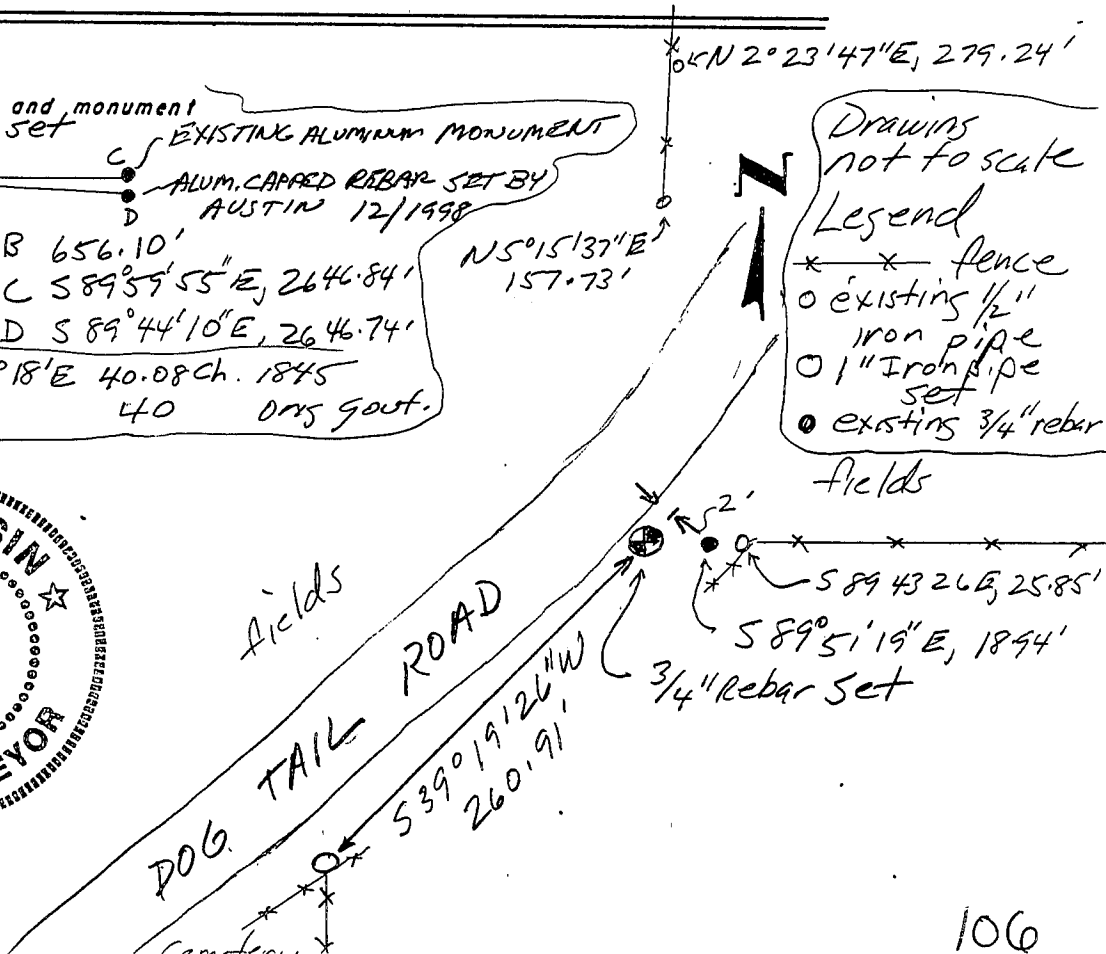 N 2°23'47"E, 279.24'
and monument
set
C
EXISTING ALUMINUM MONUMENT
ALUM. CAPPED REBAR SET BY
AUSTIN 12/1998
D
B 656.10'
C S 89°59'55"E, 2646.84'
D S 89°44'10"E, 2646.74'
°18'E 40.08 Ch. 1845
40 Orig Gout.
N5°15'37"E
157.73'
N
Drawing
not to scale
Legend
fence
existing 1/2"
iron pipe
1" Iron pipe
set
existing 3/4" rebar
fields
2'
S 89 43 26 E, 25.85'
S 89°51'19" E, 1894'
3/4" Rebar Set
fields
DOG TAIL ROAD
S39°19'26"W
260.91'
SIN
EYOR
Cemetery
106